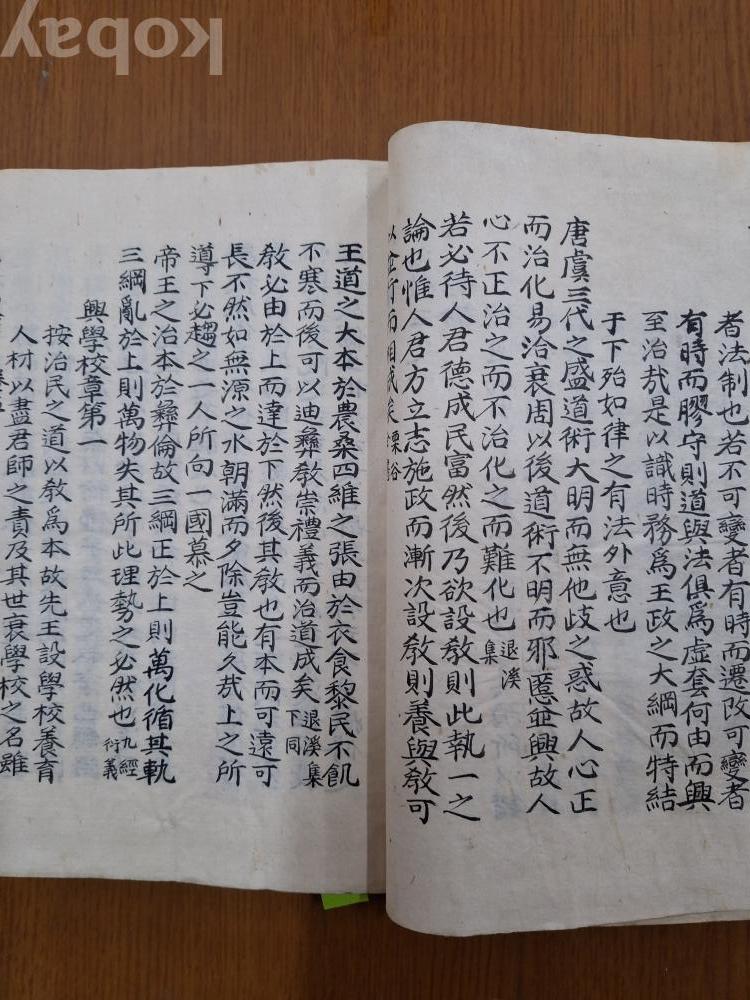 者法制也若不可變者有時而遷改可變者
有時而膠守則道與法俱爲虛套何由而興
至治哉是以識時務爲王政之大綱而特結
于下殆如律之有法外意也
唐虞三代之盛道術大明而無他歧之惑故人心正
而治化易洽衰周以後道術不明而邪慝並興故人
心不正治之而不治化之而難化也 退溪集
若必待人君德成民富然後乃欲設敎則此執一之
論也惟人君方立志施政而漸次設敎則養與敎可
以並行而相成矣 栗谷
王道之大本於農桑四維之張由於衣食黎民不飢
不寒而後可以迪彝敎崇禮義而治道成矣 退溪集下同
敎必由於上而達於下然後其敎也有本而可遠可
長不然如無源之水朝滿而夕除豈能久哉上之所
導下必趨之一人所向一國慕之
帝王之治本於彝倫故三綱正於上則萬化循其軌
三綱亂於上則萬物失其所此理勢之必然也 九經衍義
興學校章第一
按治民之道以敎爲本故先王設學校養育
人材以盡君師之責及其世衰學校之名雖
kobay